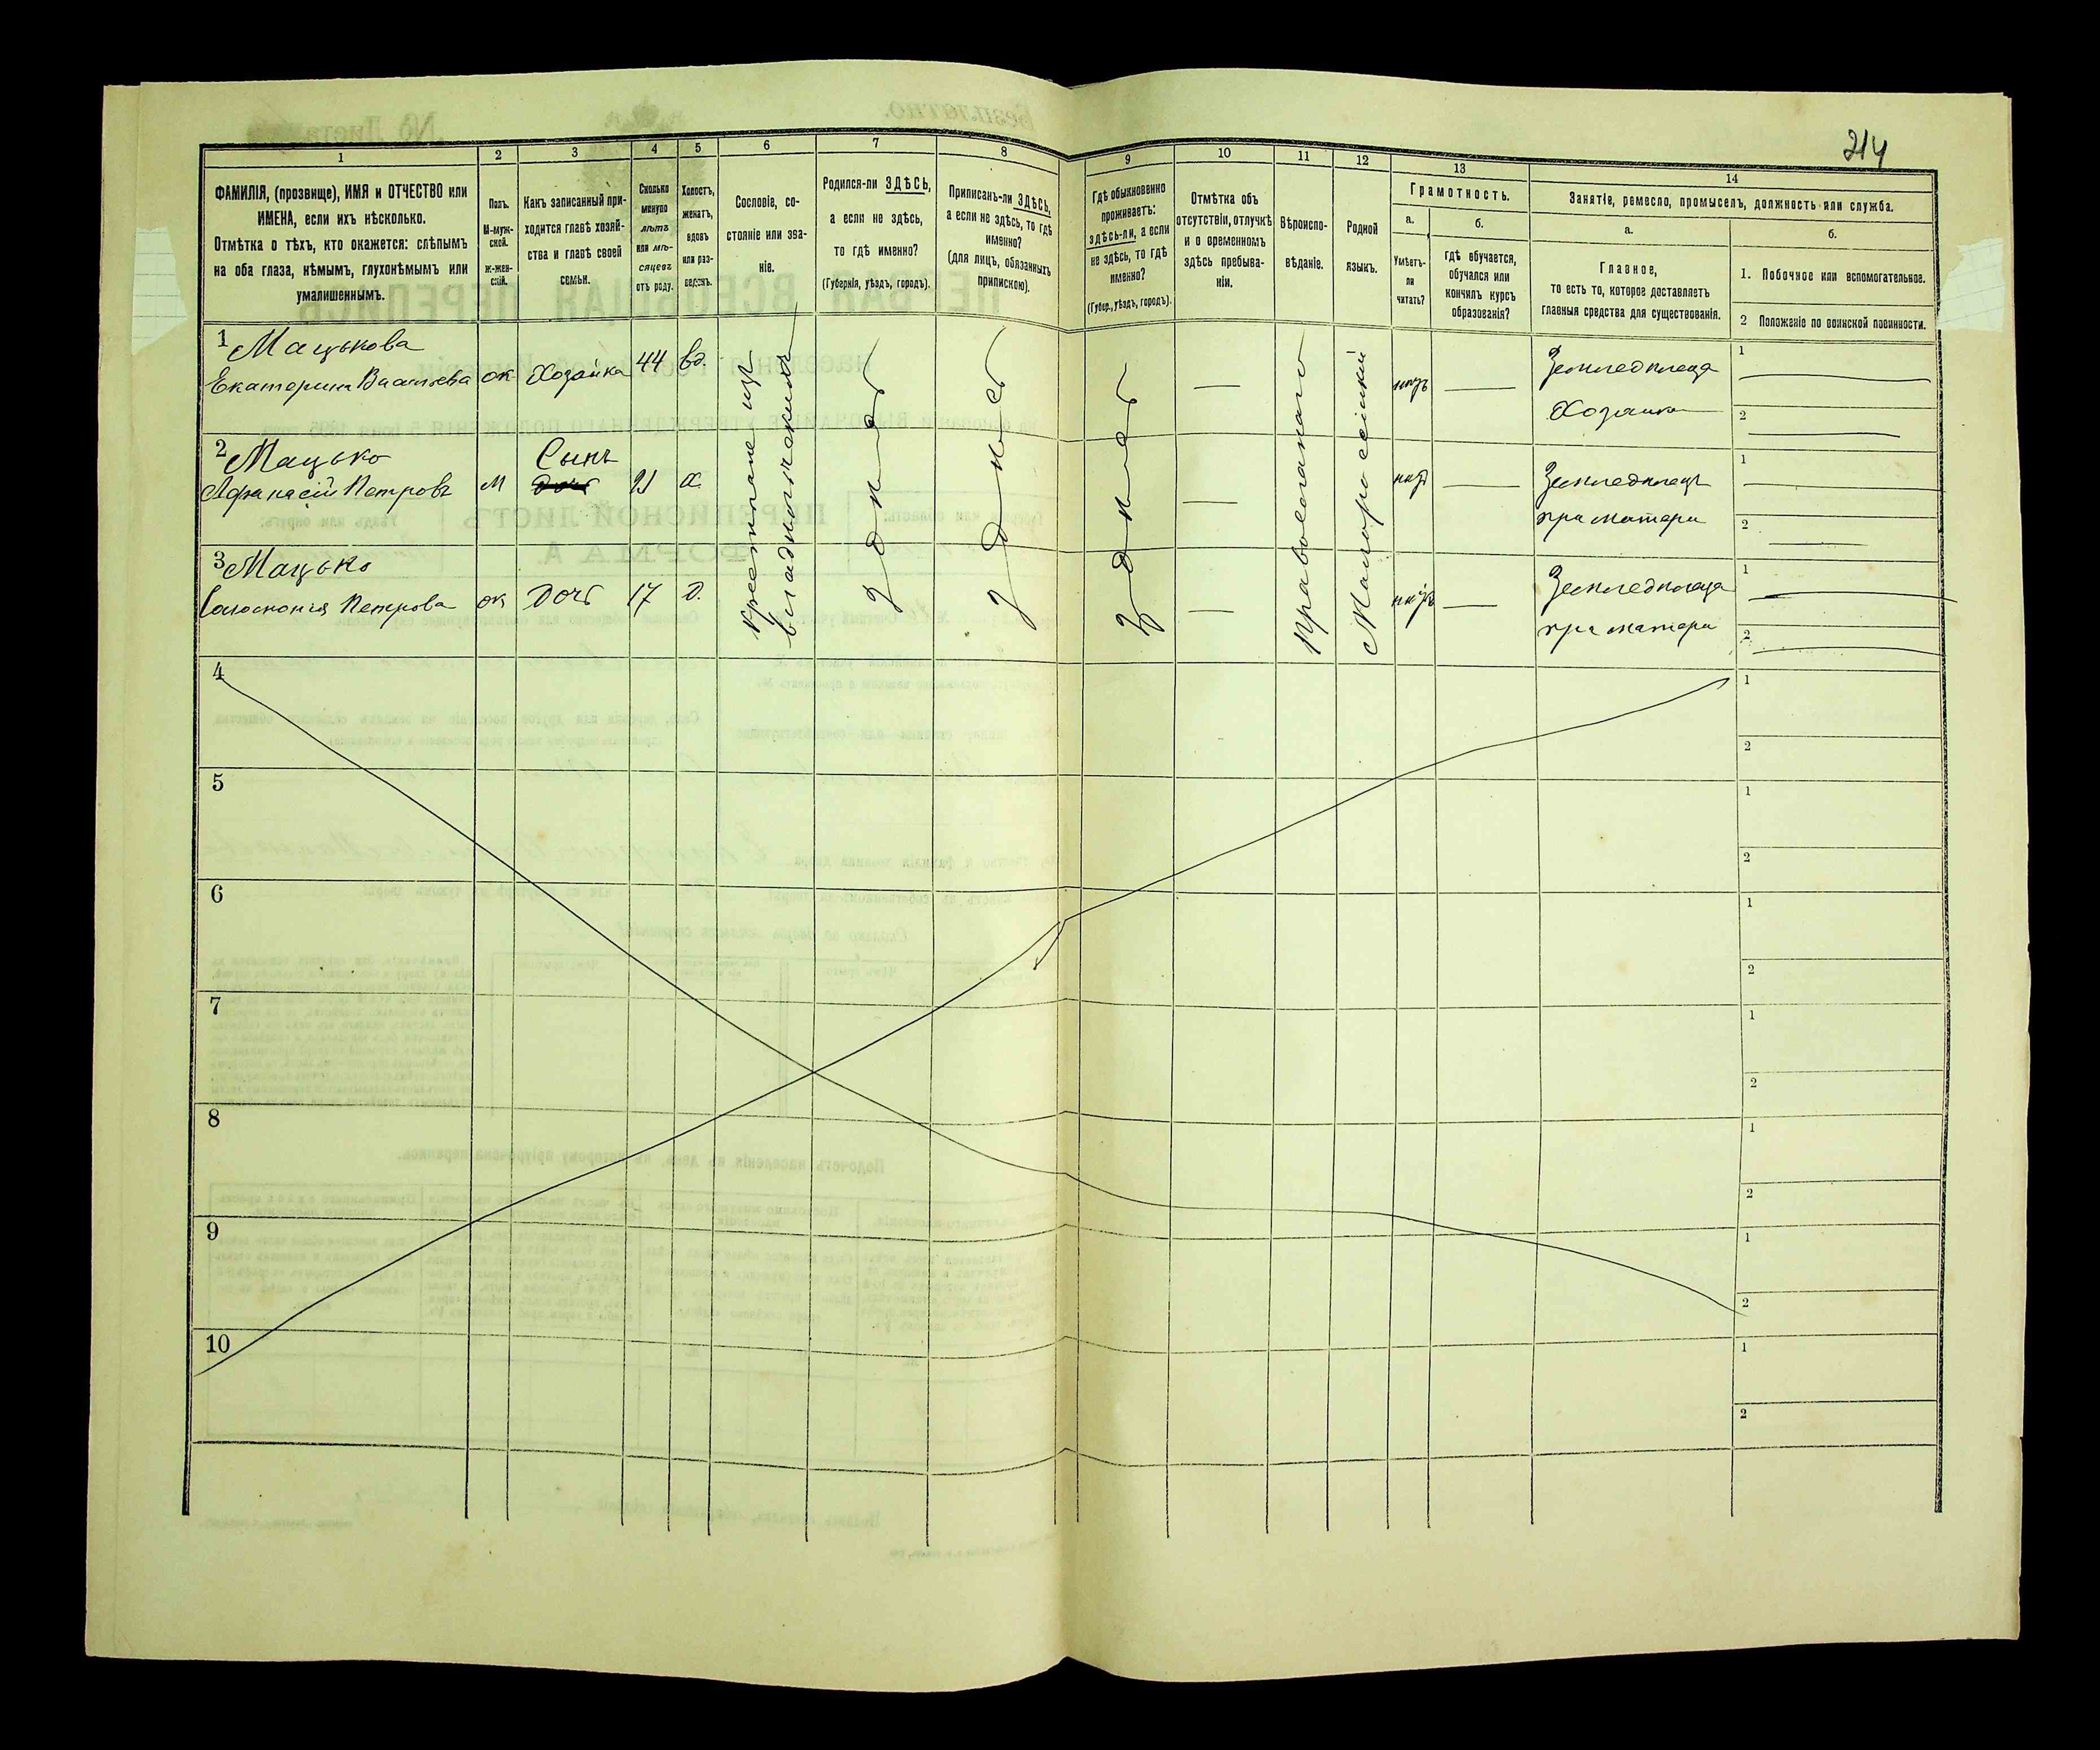 214
1 2 3 4 5 6 7 8 9 10 11 12 13 14
ФАМИЛІЯ, (прозвище), ИМЯ и ОТЧЕСТВО или
ИМЕНА, если ихъ нѣсколько.
Отмѣтка о тѣхъ, кто окажется: слѣпымъ
на оба глаза, нѣмымъ, глухонѣмымъ или
умалишеннымъ.
Полъ.
М-муж-
ской.
Ж-жен-
скій.
Какъ записанный при-
ходится главѣ хозяй-
ства и главѣ своей
семьи.
Сколько
минуло
лѣтъ
или мѣ-
сяцевъ
отъ роду.
Холостъ,
женатъ,
вдовъ
или раз-
веденъ.
Сословіе, со-
стояніе или зва-
ніе.
Родился-ли ЗДѢСЬ,
а если не здѣсь,
то гдѣ именно?
(Губернія, уѣздъ, городъ).
Приписанъ-ли ЗДѢСЬ,
а если не здѣсь, то гдѣ
именно?
(для лицъ, обязанныхъ
припискою).
Гдѣ обыкновенно
проживаетъ:
здѣсь-ли, а если
не здѣсь, то гдѣ
именно?
(Губер., уѣздъ, городъ).
Отмѣтка объ
отсутствіи, отлучкѣ
и о временномъ
здѣсь пребыва-
ніи.
Вѣроиспо-
вѣданіе.
Родной
языкъ.
Грамотность.
а.
Умѣетъ-
ли
читать?
б.
гдѣ обучается,
обучался или
кончилъ курсъ
образованія?
Занятіе, ремесло, промыселъ, должность или служба.
а.
Главное,
то есть то, которое доставляетъ
главныя средства для существованія.
б.
1. Побочное или вспомогательное.
2 Положеніе по воинской повинности.
1 Мацькова
Екатерина Васильева ж Хозяйка 44 вд.
Крестьяне изъ
владѣльческихъ
Здѣсь
Здѣсь
Здѣсь
Православнаго
Малороссійкій
нѣтъ
Земледѣлеца
Хозяйка
1
2
2 Мацько
Афанасій Петровъ М Сынъ 21 х.
Дочь
нѣтъ
Земледѣлецъ
при матери
1
2
3 Мацько
Петрова ж Дочь 17 д.
нѣтъ
Земледѣлеца
при матери
1
2
4
1
2
5
1
2
6
1
2
7
1
2
8
1
2
9
1
2
10
1
2